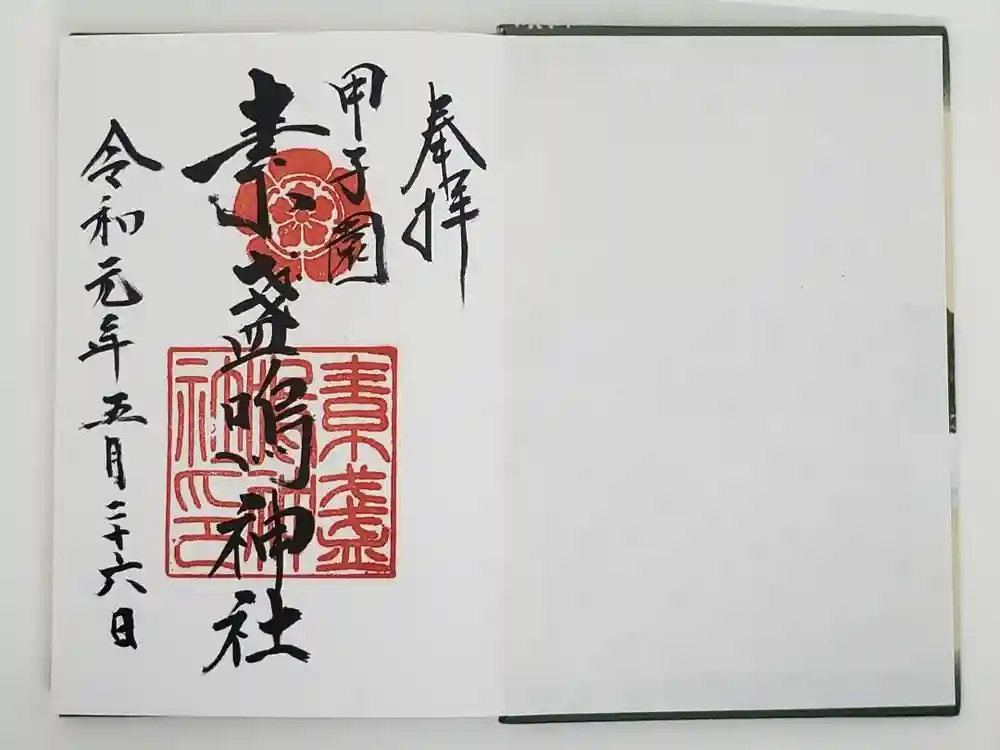 奉拝
甲子園
素盞嗚神社
令和元年五月二十六日
素盞
嗚神
社印